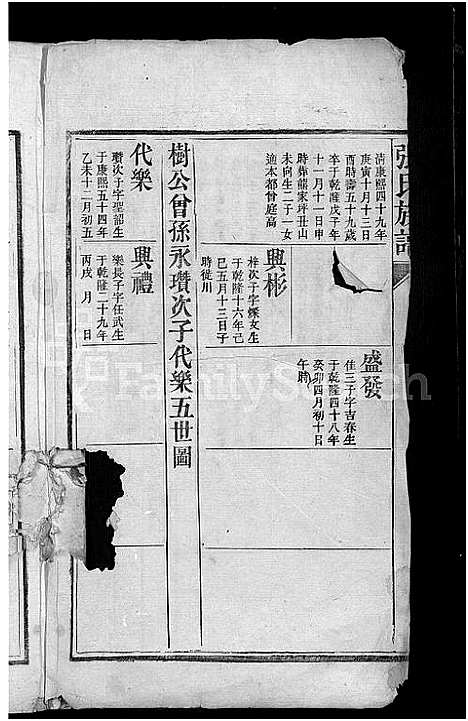 張氏族譜
清康熙四十九年
庚寅十月十三日
酉時壽五十九歲
卒于乾隆戊子年
十一月十一日申
時葬龍家坪丑山
未向生二子一女
適本都曾庭高
興彬
梓次子字㷍文生
于乾隆十六年己
巳五月十三日子
時徒川
盛發
佳三子字吉春生
于乾隆四十八年
癸卯四月初十日
午時
樹公曾孫永瓚次子代樂五世圖
代樂
瓚次子字聖韶生
于康熙五十四年
乙未十二月初五
興禮
樂長子字任武生
于乾隆二十九年
丙戌 月 日
FamilySearch